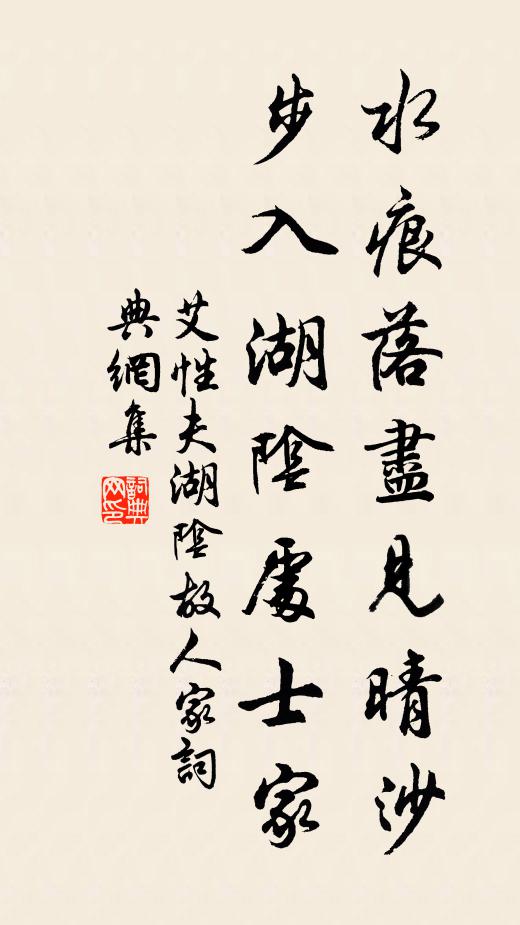 水痕落盡見晴沙
步入湖陰處士家
艾性夫湖陰故人家詞
典網集
詞典網印